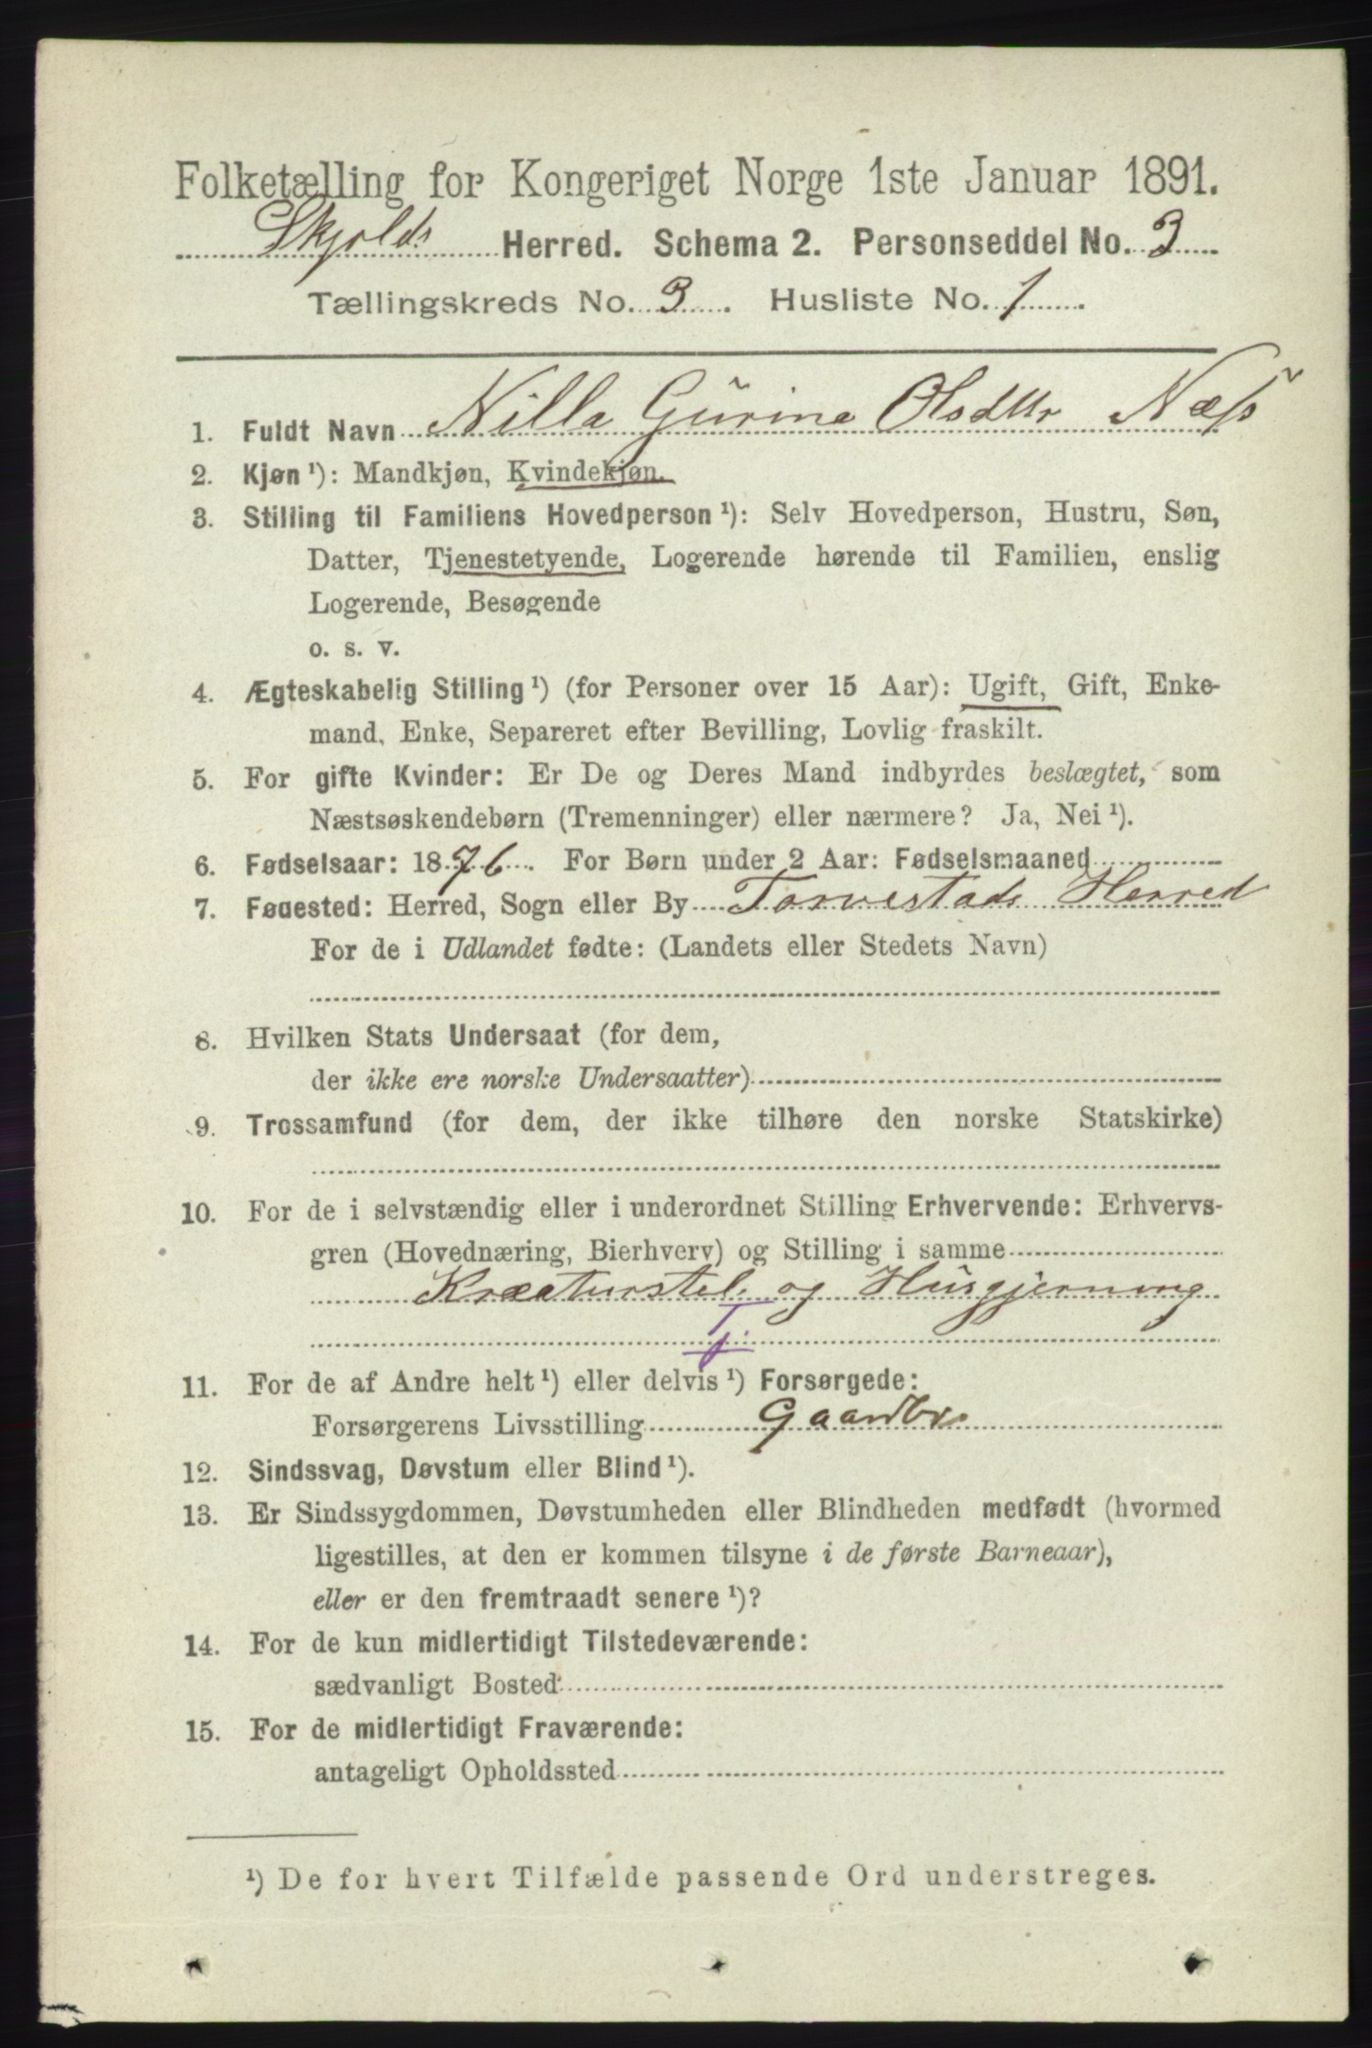 Folketælling for Kongeriget Norge 1ste Januar 1891.
Skjolds Herred. Schema 2. Personseddel No. 3
Tællingskreds No. 3. Husliste No. 1.
1. Fuldt Navn Nilla Gurine Olsdttr Næss
2. Kjøn¹): Mandkjøn, Kvindekjøn.
3. Stilling til Familiens Hovedperson¹): Selv Hovedperson, Hustru, Søn,
Datter, Tjenestetyende, Logerende hørende til Familien, enslig
Logerende, Besøgende
o. s. v.
4. Ægteskabelig Stilling¹) (for Personer over 15 Aar): Ugift, Gift, Enke-
mand, Enke, Separeret efter Bevilling, Lovlig fraskilt.
5. For gifte Kvinder: Er De og Deres Mand indbyrdes beslægtet, som
Næstsøskendebørn (Tremenninger) eller nærmere? Ja, Nei¹).
6. Fødselsaar: 1876. For Børn under 2 Aar: Fødselsmaaned
7. Fødested: Herred, Sogn eller By Torvestads Herred
For de i Udlandet fødte: (Landets eller Stedets Navn)
8. Hvilken Stats Undersaat (for dem,
der ikke ere norske Undersaatter)
9. Trossamfund (for dem, der ikke tilhøre den norske Statskirke)
10. For de i selvstændig eller i underordnet Stilling Erhvervende: Erhvervs-
gren (Hovednæring, Bierhverv) og Stilling i samme
Kreaturstel. og Husgjerning
Tj.
11. For de af Andre helt¹) eller delvis¹) Forsørgede:
Forsørgerens Livsstilling Gaardbr.
12. Sindssvag, Døvstum eller Blind¹).
13. Er Sindssygdommen, Døvstumheden eller Blindheden medfødt (hvormed
ligestilles, at den er kommen tilsyne i de første Barneaar),
eller er den fremtraadt senere¹)?
14. For de kun midlertidigt Tilstedeværende:
sædvanligt Bosted
15. For de midlertidigt Fraværende:
antageligt Opholdssted
¹) De for hvert Tilfælde passende Ord understreges.